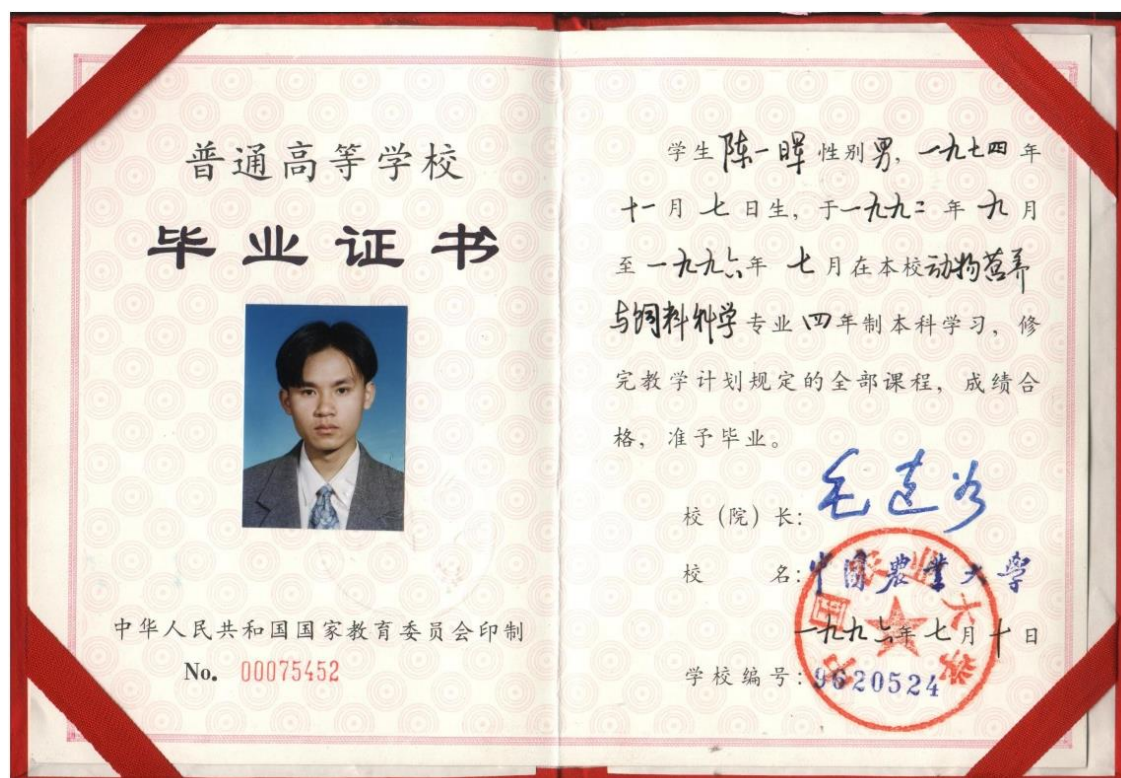 普通高等学校
毕业证书
中华人民共和国国家教育委员会印制
No. 00075452
学生陈一晖性别男，一九七四年
十一月七日生，于一九九二年九月
至一九九六年七月在本校动物营养
与饲料科学专业四年制本科学习，修
完教学计划规定的全部课程，成绩合
格，准予毕业。
校（院）长：毛达如
校名：中国农业大学
一九九六年七月十日
学校编号：9620524
中国农业大学